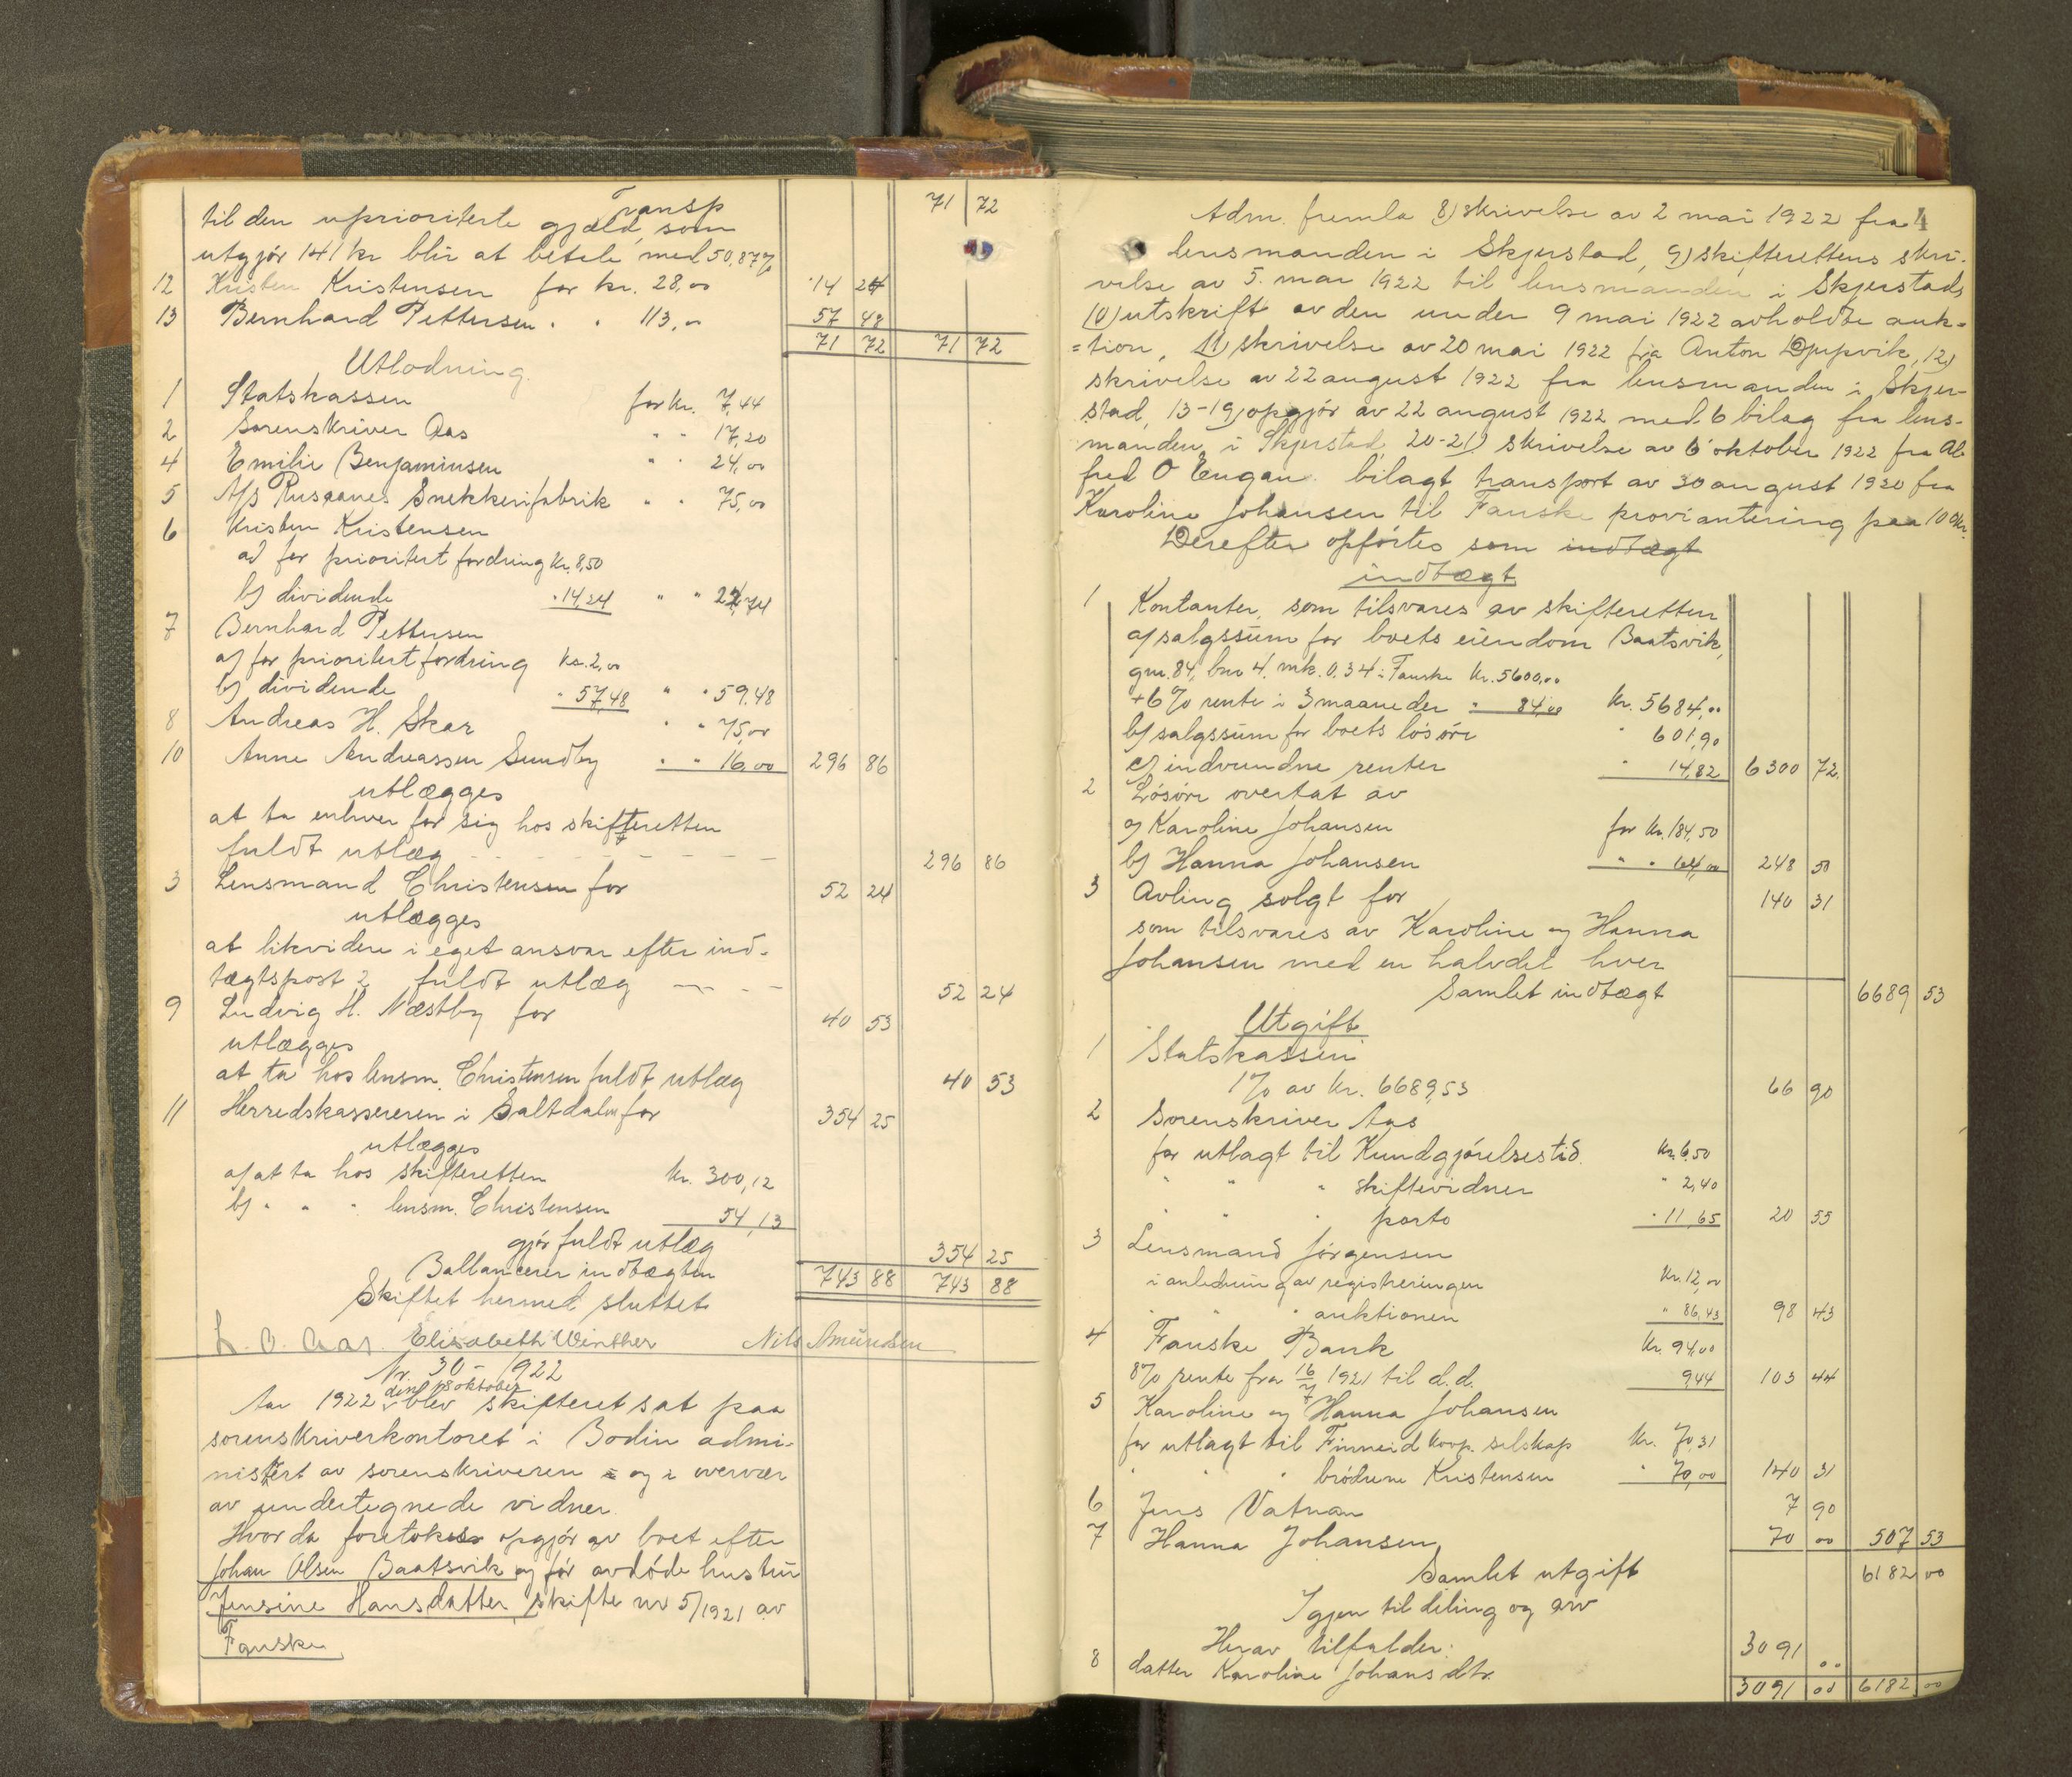 Transp 71 72
til den uprioriterte gjæld, som
utgjør 141 kr blir at betale med 50,87%
12 Kristen Kristensen for kr. 28,00 14 24
13 Bernhard Pettersen " " 113,00 57 48
71 72 71 72
Utlodning.
1 Statskassen for kr. 7,44
2 Sorenskriver Aas " " 17,20
4 Emilie Benjaminsen " " 24,00
5 A/S Rusaanes Snekkerifabrik " " 75,00
6 Kristen Kristensen
a) for prioritert fordring Kr. 8,50
b) dividende " 14,24 " " 22,74
7 Bernhard Pettersen
a) for prioritert fordring Kr. 2,00
b) dividende " 57,48 " " 59,48
8 Andreas H. Skar " " 75,00
10 Anne Andreassen Sundby " " 16,00 296 86
utlægges
at ta enhver for sig hos skifteretten
fuldt utlæg - - - - - - - 296 86
3 Lensmand Christensen for 52 24
utlægges
at likvidere i eget ansvar efter ind-
tægtspost 2 fuldt utlæg - - - 52 24
9 Ludvig H. Næstby for 40 53
utlægges
at ta hos lensm. Christensen fuldt utlæg 40 53
11 Herredskassereren i Saltdalen for 354 25
utlægges
a) at ta hos skifteretten kr. 300,12
b) " " " lensm. Christensen 54,13
gjør fuldt utlæg 354 25
Ballancerer indtægten 743 88 743 88
Skiftet hermed sluttet.
L. O. Aas. Elisabeth Winther Nils Amundsen
Nr. 30 - 1922
Aar 1922 den 18 oktober blev skifteret sat paa
sorenskriverkontoret i Bodin admi-
nistert av sorenskriveren og i overvær
av undertegnede vidner.
Hvor da foretokes opgjør av boet efter
Johan Olsen Baatsvik og før avdøde hustru
Jensine Hansdatter, skifte nr 5/1921 av
Fauske
4
Adm. fremla 8) skrivelse av 2 mai 1922 fra
lensmanden i Skjerstad, 9) skifterettens skri-
velse av 5. mai 1922 til lensmanden i Skjerstad,
10) utskrift av den under 9 mai 1922 avholdte auk-
=tion, 11) skrivelse av 20 mai 1922 fra Anton Djupvik, 12)
skrivelse av 22 august 1922 fra lensmanden i Skjer-
stad, 13-19) opgjør av 22 august 1922 med 6 bilag fra lens-
manden i Skjerstad, 20-21) skrivelse av 6 oktober 1922 fra Al-
fred O Engan bilagt transport av 30 august 1920 fra
Karoline Johansen til Fauske proviantering paa 100 kr.
Derefter opførtes som indtægt
indtægt
1 Kontanter, som tilsvares av skifteretten
a) salgssum for boets eiendom Baatsvik,
gnr. 84, bnr 4, mk. 0.34 i Fauske Kr. 5600,00
+6% rente i 3 maaneder " 84,00 Kr. 5684,00
b) salgssum for boets løsøre " 601,90
c) indvundne renter " 14,82 6300 72
2 Løsøre overtat av
a) Karoline Johansen for kr. 184,50
b) Hanna Johansen " " 64,00 248 50
3 Avling solgt for 140 31
som tilsvares av Karoline og Hanna
Johansen med en halvdel hver
Samlet indtægt 6689 53
Utgift
1 Statskassen
1% av kr. 6689,53 66 90
2 Sorenskriver Aas
for utlagt til Kundgjørelsestid. Kr. 6,50
" " " skiftevidner " 2,40
" " " porto " 11,65 20 55
3 Lensmand Jørgensen
i anledning av registreringen Kr. 12,00
" " " auktionen " 86,43 98 43
4 Fauske Bank Kr. 94,00
8% rente fra 16/7 1921 til d.d. 9,44 103 44
5 Karoline og Hanna Johansen
for utlagt til Finneid koop. selskap kr. 70,31
" " " brødrene Kristensen " 70,00 140 31
6 Jens Vatnan 7 90
7 Hanna Johansen 70 00 507 53
Samlet utgift 6182 00
Igjen til deling og arv
Herav tilfalder:
8 datter Karoline Johansdtr. 3091 00
3091 00 6182 00